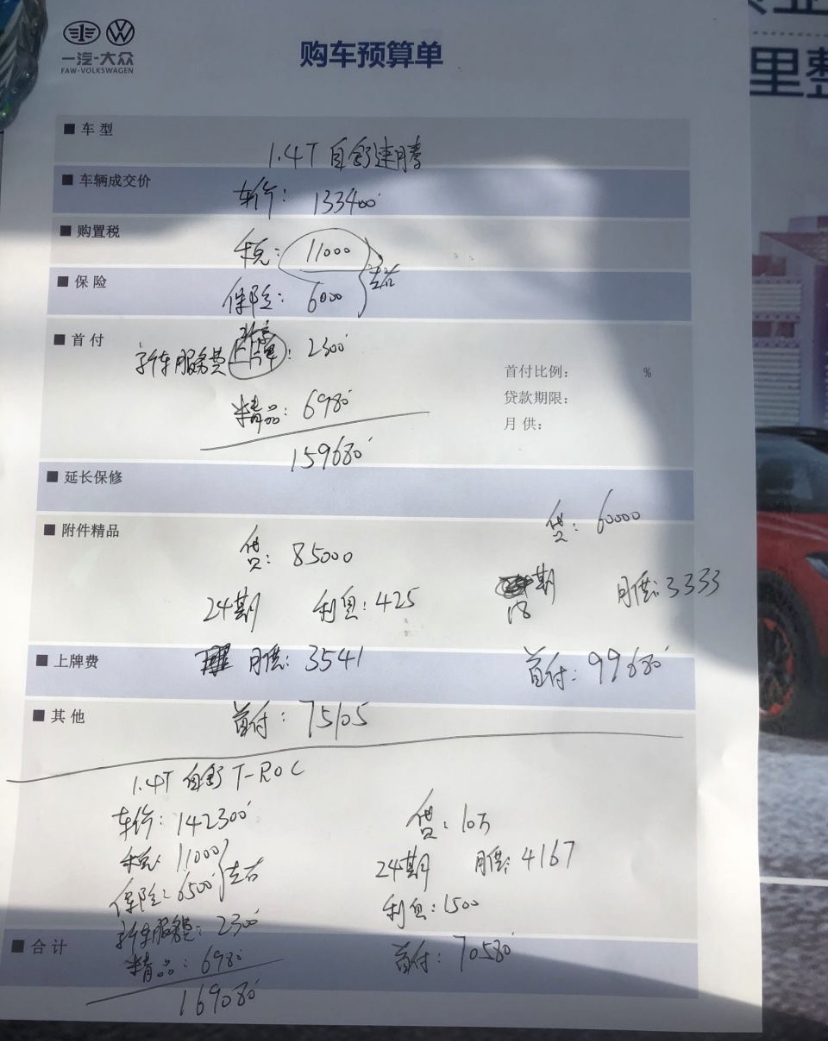 一汽-大众
FAW-VOLKSWAGEN
购车预算单
里整
■ 车型
1.4T 自舒速腾
■ 车辆成交价
车价: 133400
■ 购置税
税: 11000
左右
■ 保险
保险: 6000
■ 首付
新车服务费 上牌: 2300
首付比例: %
贷款期限:
精品: 6980
月供:
159680
■ 延长保修
■ 附件精品
贷: 85000
贷: 60000
24期 利息: 425
18期 月供: 3333
■ 上牌费
月供: 3541
首付: 99680
■ 其他
首付: 75105
1.4T 自舒 T-ROC
车价: 142300
贷: 10万
税: 11000
左右
24期 月供: 4167
保险: 6500
利息: 1500
新车服务费: 2300
■ 合计
精品: 6980
首付: 70580
169080